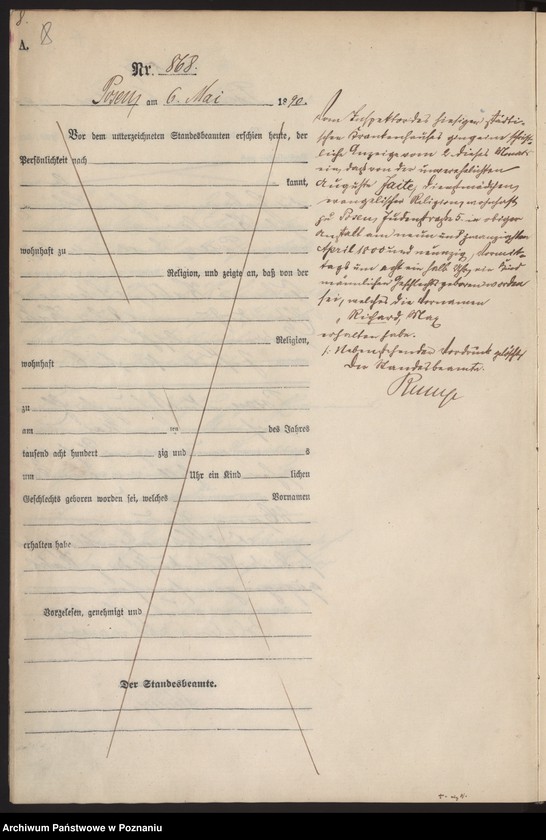 8.
8
A.
Nr. 868.
Posen am 6. Mai 1890.
Vor dem unterzeichneten Standesbeamten erschien heute, der
Persönlichkeit nach
kannt,
wohnhaft zu
Religion, und zeigte an, daß von der
Religion,
wohnhaft
zu
am ten des Jahres
tausend acht hundert zig und s
um Uhr ein Kind lichen
Geschlechts geboren worden sei, welches Vornamen
erhalten habe
Vorgelesen, genehmigt und
Der Standesbeamte.
Vom Inspektor des hiesigen städti-
schen Krankenhauses ging eine schrift-
liche Anzeige vom 2. dieses Monats
ein, daß von der unverehelichten
Auguste Jaite, Dienstmädchen,
evangelischer Religion, wohnhaft
zu Posen, Judenstraße 5. in obiger
Anstalt am neun und zwanzigsten
April 1800 und neunzig, Vormit-
tags um acht ein halb Uhr, ein Kind
männlichen Geschlechts geboren worden
sei, welches die Vornamen
Richard, Max
erhalten habe.
Nebenstehender Vordruck gelöscht.
Der Standesbeamte.
Archiwum Państwowe w Poznaniu